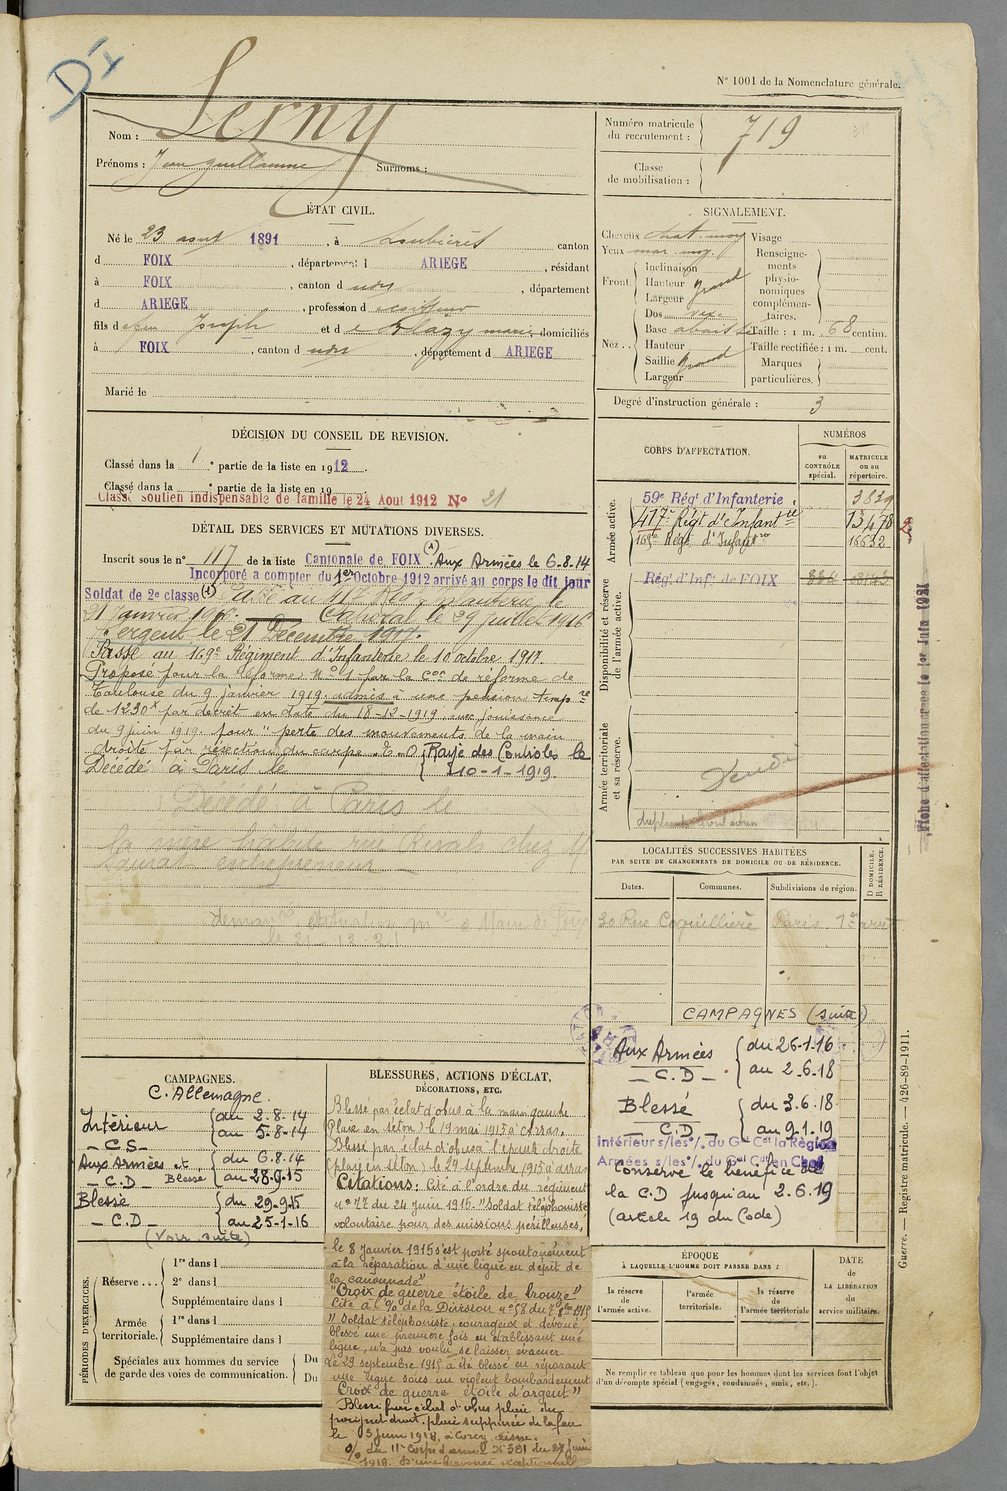 D'1
N° 1001 de la Nomenclature générale.
Nom : Serny
Prénoms : Jean Guillaume Surnoms :
Numéro matricule du recrutement : 719
Classe de mobilisation :
ÉTAT CIVIL.
Né le 23 aout 1891, à Loubières canton
d FOIX, département d ARIEGE, résidant
à FOIX, canton d udrs, département
d ARIEGE, profession d coiffeur
fils d feu Joseph et d e Blazy marie, domiciliés
à FOIX, canton d udrs, département d ARIEGE
Marié le
SIGNALEMENT.
Cheveux chat. moy
Yeux mar. moy.
Front. Inclinaison
Hauteur grand
Largeur
Nez.. Dos vexe
Base abais
Hauteur
Saillie grand
Largeur
Visage
Renseignements physionomiques complémentaires.
Taille : 1 m. 68 centim.
Taille rectifiée : 1 m. cent.
Marques particulières.
Degré d'instruction générale : 3
DÉCISION DU CONSEIL DE REVISION.
Classé dans la 1 e partie de la liste en 1912.
Classé dans la e partie de la liste en 19
Classé soutien indispensable de famille le 24 Aout 1912 N° 21
DÉTAIL DES SERVICES ET MUTATIONS DIVERSES.
Inscrit sous le n° 117 de la liste Cantonale de FOIX (A) Aux Armées le 6.8.14
Incorporé a compter du 1er Octobre 1912 arrivé au corps le dit jour
Soldat de 2e classe (A) Passé au 417e Rég. Infanterie le
21 Janvier 1916. Caporal le 29 juillet 1916
Sergent le 21 Décembre 1917.
Passé au 169e Régiment d'Infanterie le 10 octobre 1917.
Proposé pour la Réforme N° 1 par la Con de réforme de
Toulouse du 9 Janvier 1919. admis à une pension temp re
de 1230 x par décret en date du 18-12-1919, avec jouissance
du 9 juin 1919. pour "perte des mouvements de la main
droite par résection du carpe. E.O. Rayé des Controles le
Décédé à Paris le 10-1-1919.
Décédé à Paris le
la mère habite rue chez M
Laurat entrepreneur
le 21-12-21
CORPS D'AFFECTATION.
NUMÉROS
au CONTRÔLE spécial.
MATRICULE ou au répertoire.
Armée active.
59e Rég t d'Infanterie 3829
417e Régt d'Infant ie 13478 2
169e Régt d'Infant ie 16632
Disponibilité et réserve de l'armée active.
Rég t d'Inf ie de FOIX
Armée territoriale et sa réserve.
Fiche d'affectation tracée le 1er Juin 1921
LOCALITÉS SUCCESSIVES HABITÉES
PAR SUITE DE CHANGEMENTS DE DOMICILE OU DE RÉSIDENCE.
Dates. Communes. Subdivisions de région. D DOMICILE. R RÉSIDENCE.
30 Rue Coquillière Paris 1er arrt
CAMPAGNES (suite)
Aux Armées - C.D - du 26-1-16 au 2-6-18
Blessé - C.D - du 3-6-18 au 9-1-19
Intérieur s/les °/. du Gal Cdt la Région
Armées s/les °/. du Gal Cdt en Chef
Conserve le bénéfice de
la C.D jusqu'au 2.6.19
(article 19 du Code)
CAMPAGNES.
C. Allemagne.
Intérieur - C.S - du 2.8.14 au 5-8-14
Aux Armées et - C.D - Blessé du 6.8.14 au 28.9.15
Blessé - C.D - du 29.9.15 au 25-1-16
(Voir suite)
BLESSURES, ACTIONS D'ÉCLAT,
DÉCORATIONS, ETC.
Blessé par éclat d'obus à la main gauche
(Plaie en séton) le 19 mai 1915 à Arras.
Blessé par éclat d'obus à l'épaule droite
(plaie en séton) le 29 septembre 1915 à Arras
Citations : Cité à l'ordre du régiment
n° 77 du 24 juin 1915. "Soldat téléphoniste
volontaire pour des missions périlleuses,
le 8 janvier 1915 s'est porté spontanément
à la réparation d'une ligne en dépit de
la canonnade"
"Croix de guerre étoile de bronze"
Cité à l'% de la Division n° 58 du 7 8bre 1915
"Soldat téléphoniste courageux et dévoué
blessé une première fois en établissant une
ligne, n'a pas voulu se laisser évacuer
Le 29 septembre 1915 a été blessé en réparant
une ligne sous un violent bombardement
Croix de guerre étoile d'argent"
Blessé par éclat d'obus plaie du
poignet droit. plaie superficielle de la face
le 3 Juin 1918, à Corcy Aisne.
% du 11e Corps d'armée N° 581 du 27 Juin
1918. D'une bravoure exceptionnelle
PÉRIODES D'EXERCICES.
Réserve... 1re dans l
2e dans l
Supplémentaire dans l
Armée territoriale. 1re dans l
Supplémentaire dans l
Spéciales aux hommes du service de garde des voies de communication. Du Du
ÉPOQUE
À LAQUELLE L'HOMME DOIT PASSER DANS :
la réserve de l'armée active.
l'armée territoriale.
la réserve de l'armée territoriale
DATE de LA LIBÉRATION du service militaire.
Ne remplir ce tableau que pour les hommes dont les services font l'objet
d'un décompte spécial (engagés, condamnés, omis, etc.).
Guerre. — Registre matricule. — 426-89-1911.